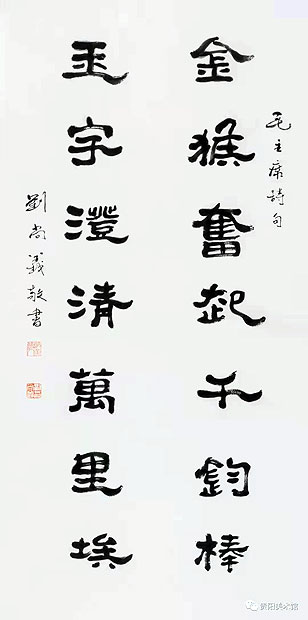 毛主席詩句
金猴奮起千鈞棒
玉宇澄清萬里埃
劉尚義敬書
贵阳美术馆